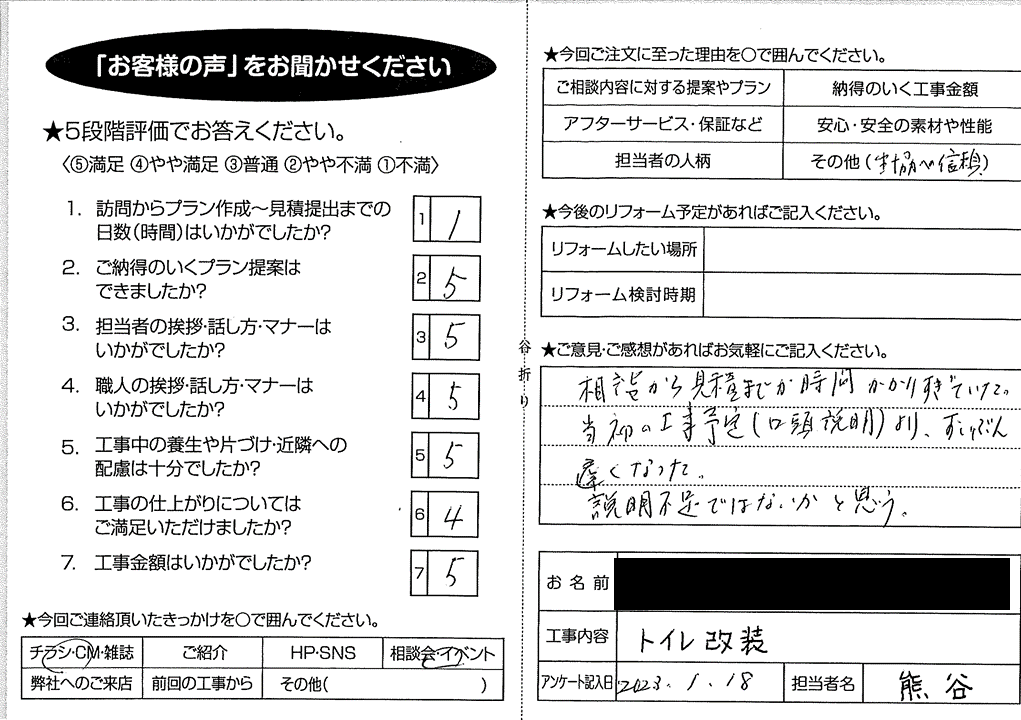 「お客様の声」をお聞かせください
★5段階評価でお答えください。
〈⑤満足 ④やや満足 ③普通 ②やや不満 ①不満〉
1. 訪問からプラン作成〜見積提出までの
日数(時間)はいかがでしたか?
1 1
2. ご納得のいくプラン提案は
できましたか?
2 5
3. 担当者の挨拶・話し方・マナーは
いかがでしたか?
3 5
4. 職人の挨拶・話し方・マナーは
いかがでしたか?
4 5
5. 工事中の養生や片づけ・近隣への
配慮は十分でしたか?
5 5
6. 工事の仕上がりについては
ご満足いただけましたか?
6 4
7. 工事金額はいかがでしたか?
7 5
★今回ご連絡頂いたきっかけを○で囲んでください。
チラシ・CM・雑誌 ご紹介 HP・SNS 相談会・イベント
弊社へのご来店 前回の工事から その他( )
谷折り
★今回ご注文に至った理由を○で囲んでください。
ご相談内容に対する提案やプラン 納得のいく工事金額
アフターサービス・保証など 安心・安全の素材や性能
担当者の人柄 その他(生協への信頼)
★今後のリフォーム予定があればご記入ください。
リフォームしたい場所
リフォーム検討時期
★ご意見・ご感想があればお気軽にご記入ください。
相談から見積までが時間かかりすぎていた。
当初の工事予定(口頭説明)より、ずいぶん
遅くなった。
説明不足ではないかと思う。
お名前
工事内容 トイレ改装
アンケート記入日 2023.1.18 担当者名 熊谷